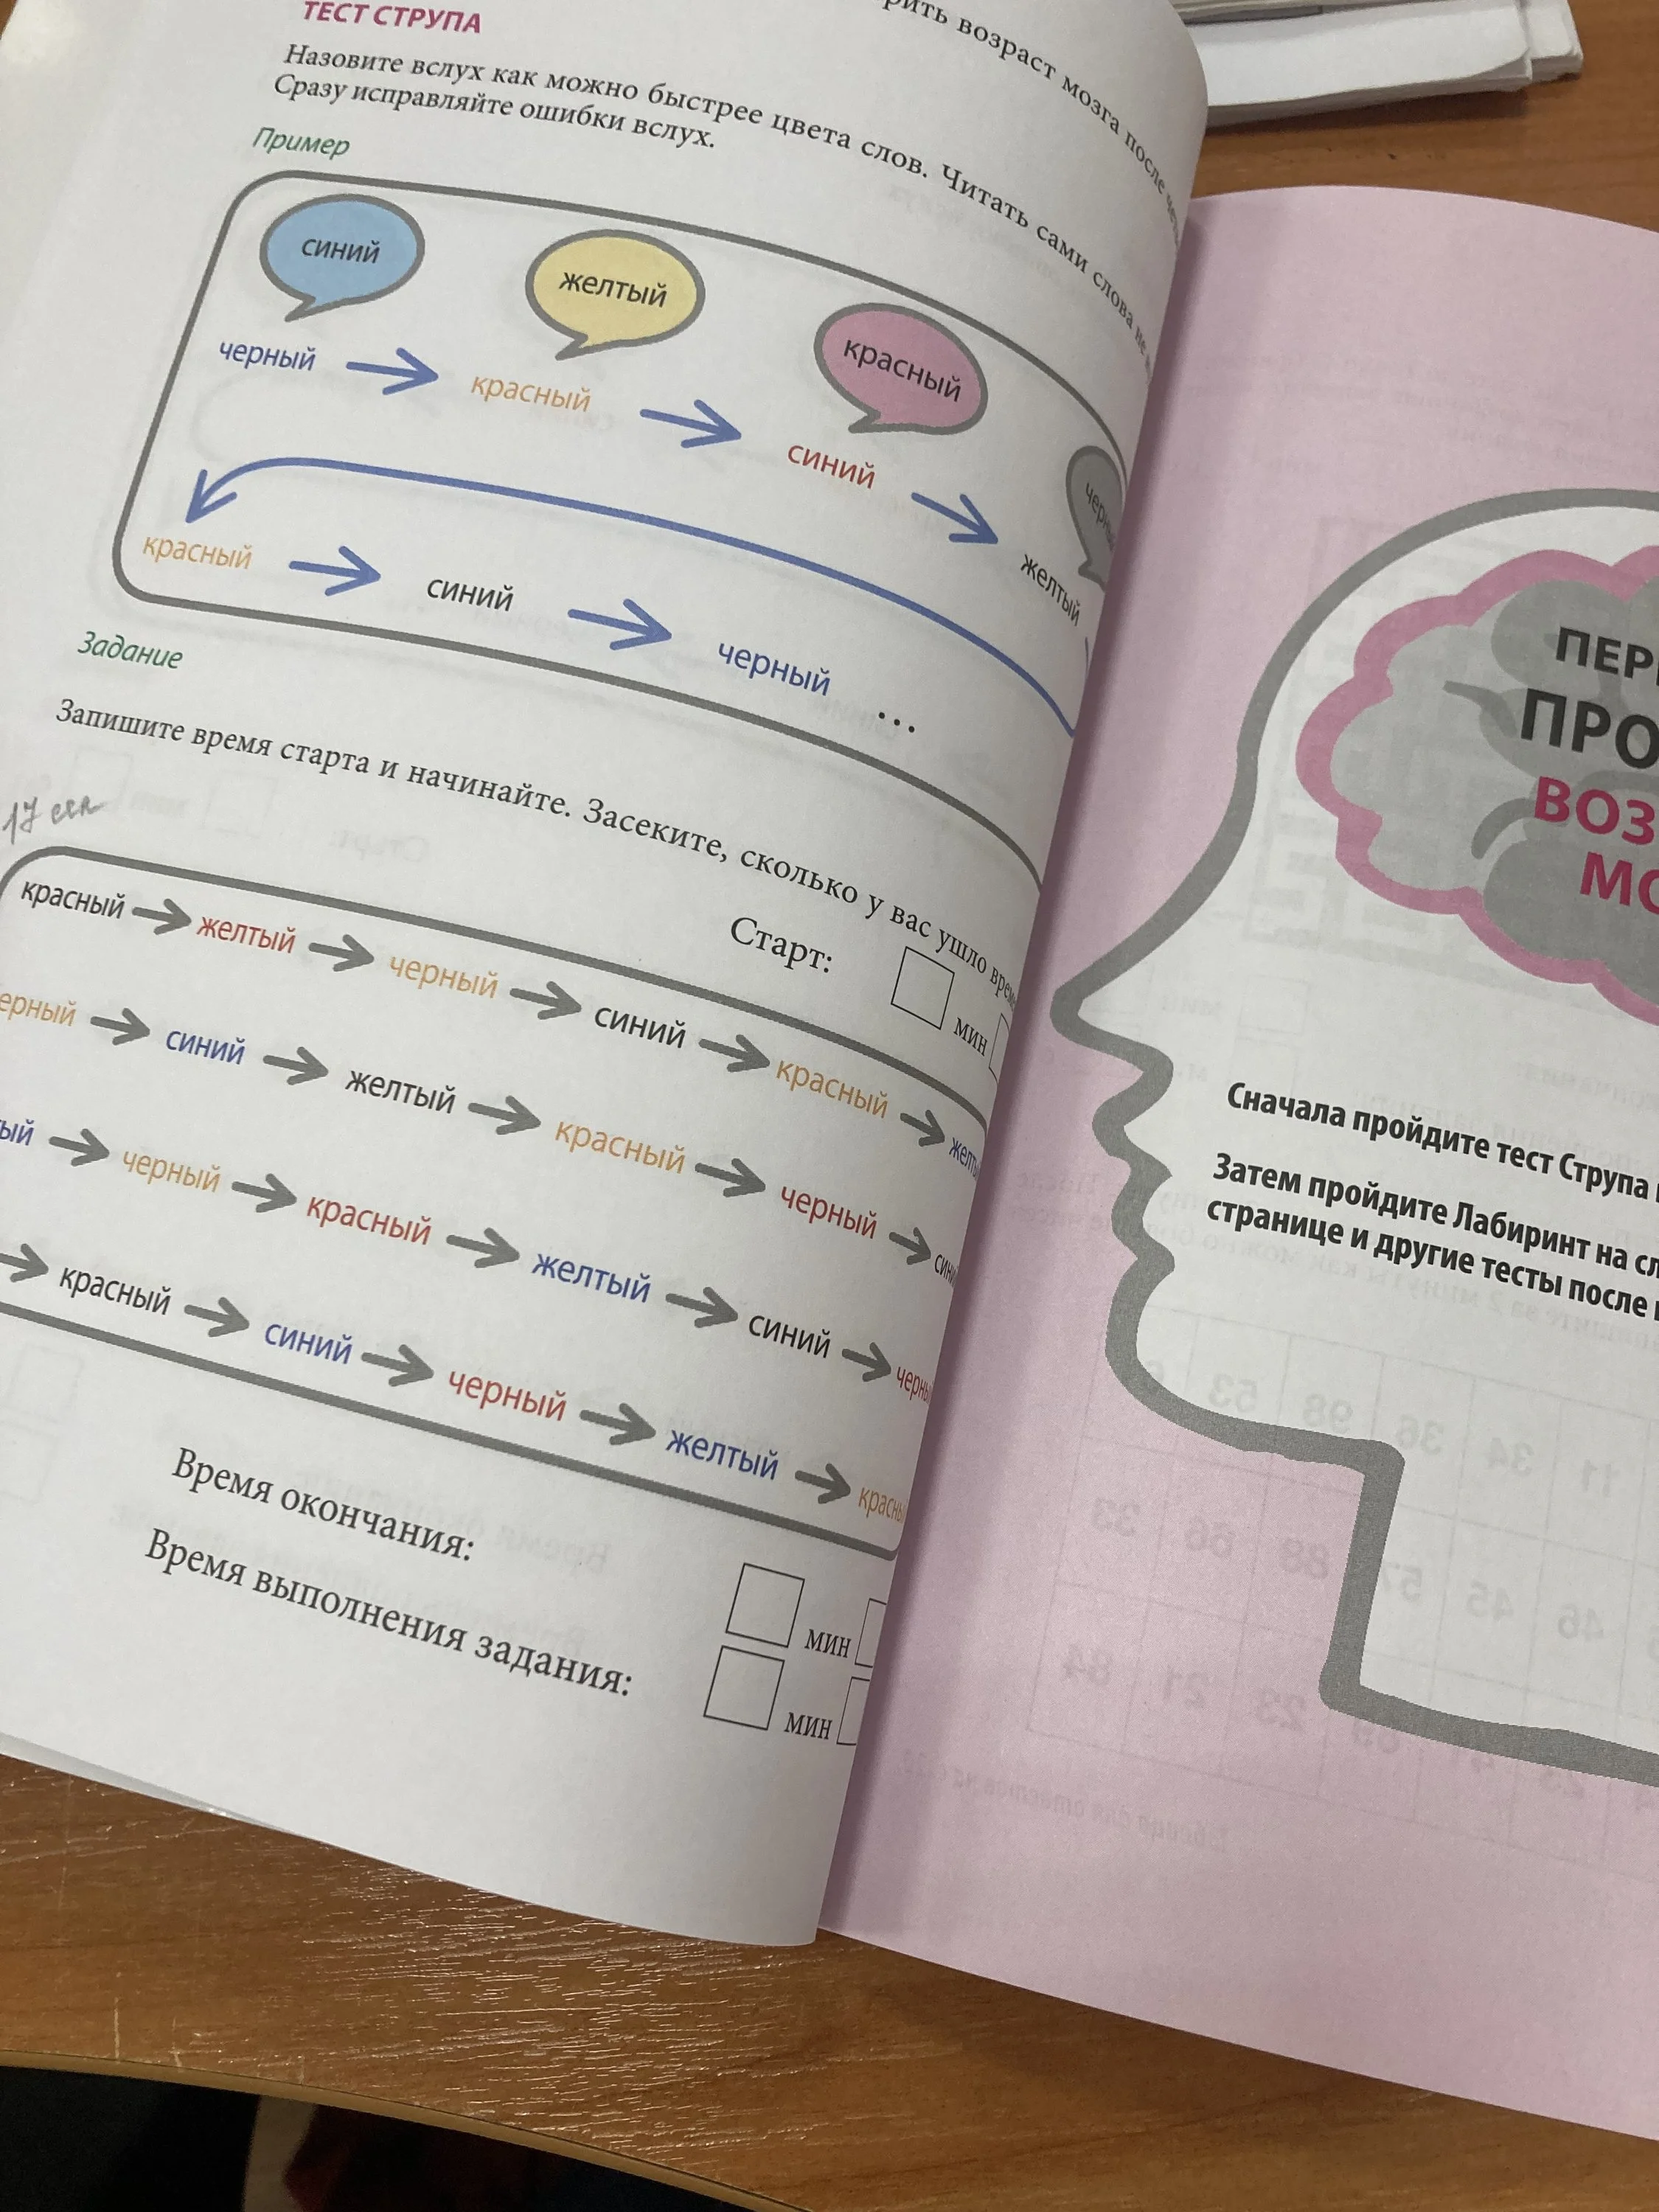 ТЕСТ СТРУПА
возраст мозга после
Назовите вслух как можно быстрее цвета слов. Читать сами слова не
Сразу исправляйте ошибки вслух.
Пример
синий
желтый
красный
черный
красный
синий
желтый
красный
синий
черный ...
Задание
Запишите время старта и начинайте. Засеките, сколько у вас ушло
17 сек
Старт:
мин
красный желтый черный синий красный
синий желтый красный черный
черный красный желтый синий
красный синий черный желтый
Время окончания:
мин
Время выполнения задания:
мин
Сначала пройдите тест Струпа
Затем пройдите Лабиринт на
странице и другие тесты после